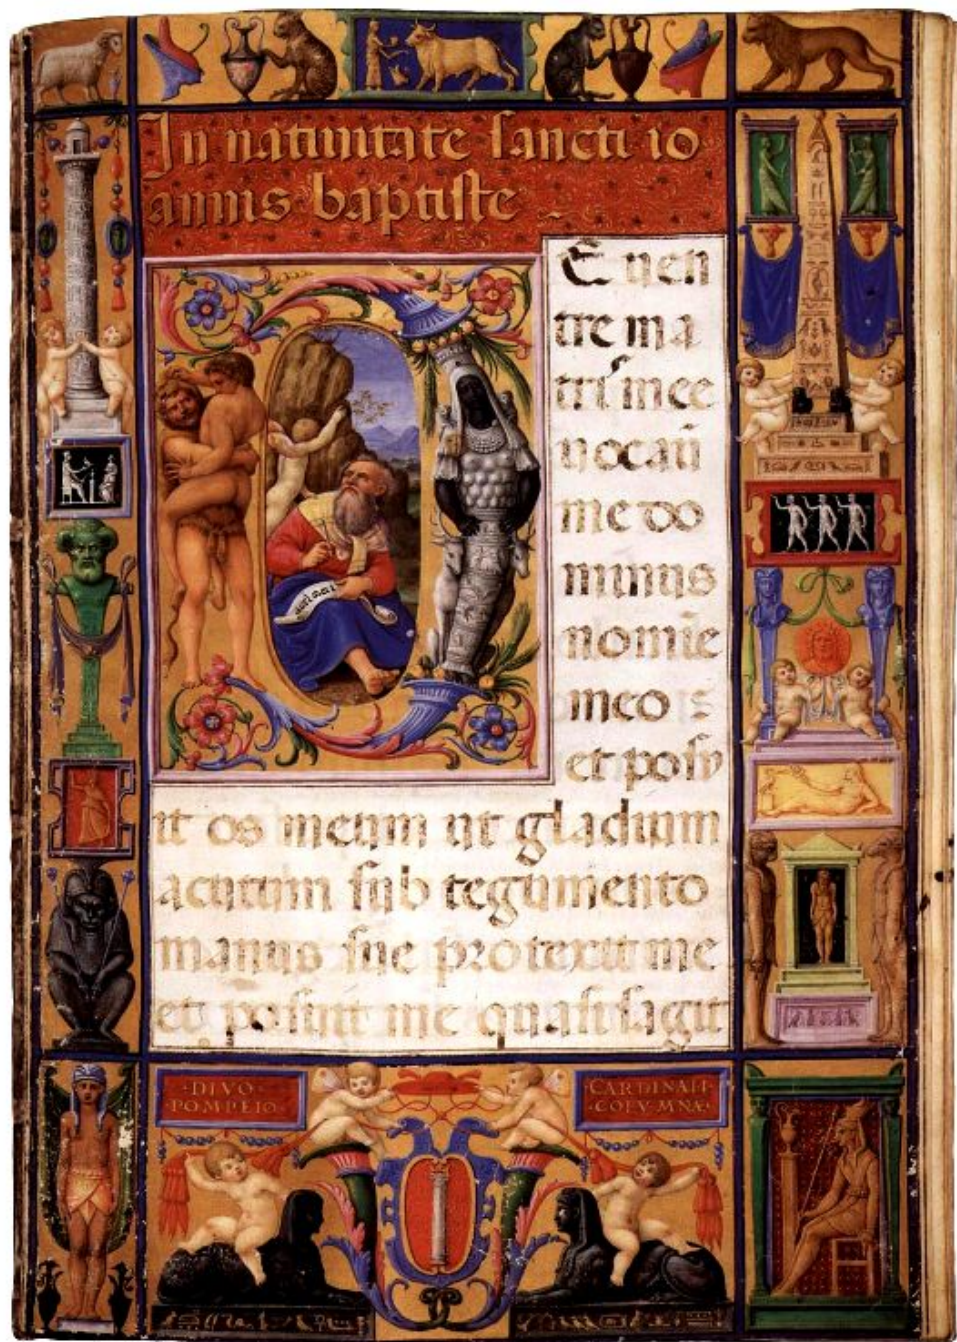 In natiuitate sancti io
annis baptiste
E uen
tre ma
tris mee
uocauit
me do
minus
nomīe
meo :
et posu
it os meum ut gladium
acutum sub tegumento
manus sue protexit me
et posuit me quasi sagit
·DIVO·
·POMPEIO·
CARDINALI
·COLVMNÆ·